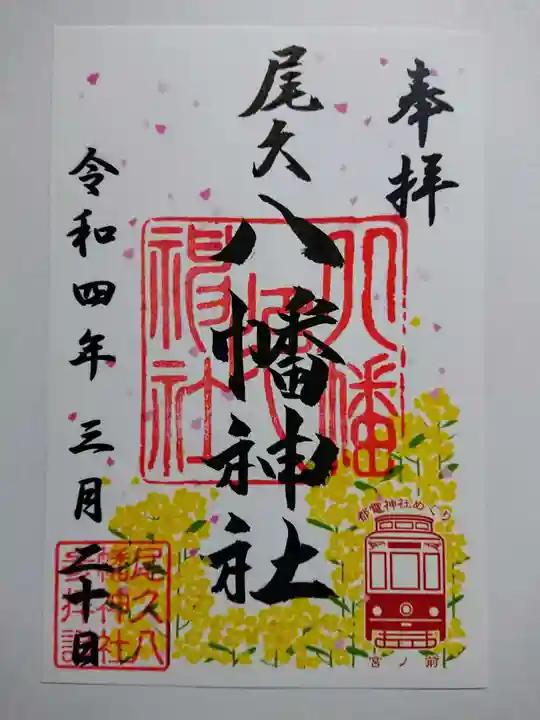 奉拝
尾久八幡神社
令和四年三月二十日
都電神社めぐり
宮ノ前
尾久八
幡神社
参拝証